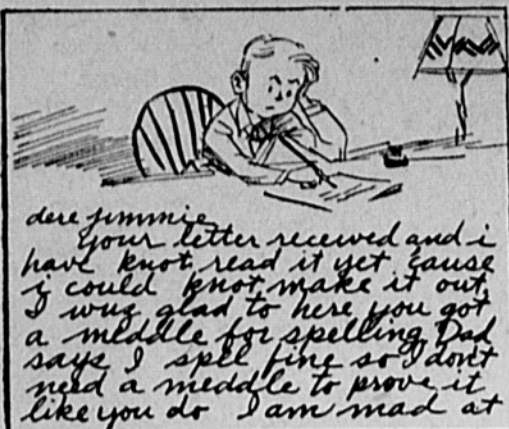 dere jimmie
your letter received and i
have knot read it yet cause
i could knot make it out
I wuz glad to here you got
a meddle for spelling Dad
says I spell fine so I dont
need a meddle to prove it
like you do I am mad at